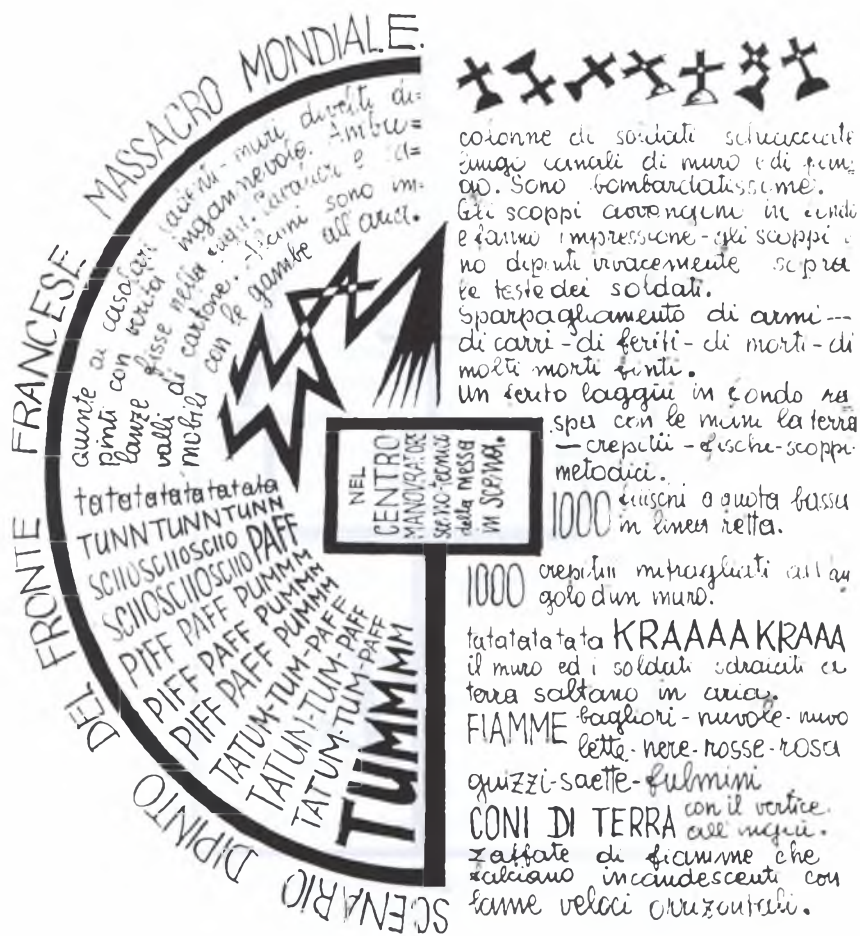 SCENARIO DIPINTO DEL FRONTE FRANCESE MASSACRO MONDIALE.
Quinte di casolari muri diroccati di=
pinti con verità ingannevole. Ambu=
lanze fisse nella e ca=
valli di cartone. sono im=
mobili con le gambe all'aria.
tatatatatatatata
TUNNTUNNTUNN
SCIIOSCIIOSCIIO PAFF
SCIIOSCIIOSCIIO PUMMM
PIFF PAFF PUMMM
PIFF PAFF PUMMM
PIFF PAFF PUMMM
TATUM-TUM-PAFF
TATUM-TUM-PAFF
TATUM-TUM-PAFF
TUMMMM
NEL
CENTRO
MANOVRATORE
sceno-tecnico
della messa
in scena.
colonne di soldati schiacciate
canali di muro e di
Sono bombardatissime.
Gli scoppi avvengono in
e fanno impressione-gli scoppi
no dipinti vivacemente sopra
le teste dei soldati.
Sparpagliamento di armi---
di carri-di feriti-di morti-di
molti morti finti.
Un ferito laggiù in fondo ra
spa con le mani la terra
—crepitii-fischi-scoppi
metodici.
1000 a quota bassa
in linea retta.
1000 crepitii mitragliati all'an
golo d'un muro.
tatatatatata KRAAAAKRAAA
il muro ed i soldati sdraiati a
terra saltano in aria.
FIAMME bagliori-nuvole-nuvo
lette-nere-rosse-rosa
guizzi-saette-fulmini
CONI DI TERRA con il vertice
all'ingiù.
zaffate di fiamme che
falciano incandescenti con
lame veloci orizzontali.